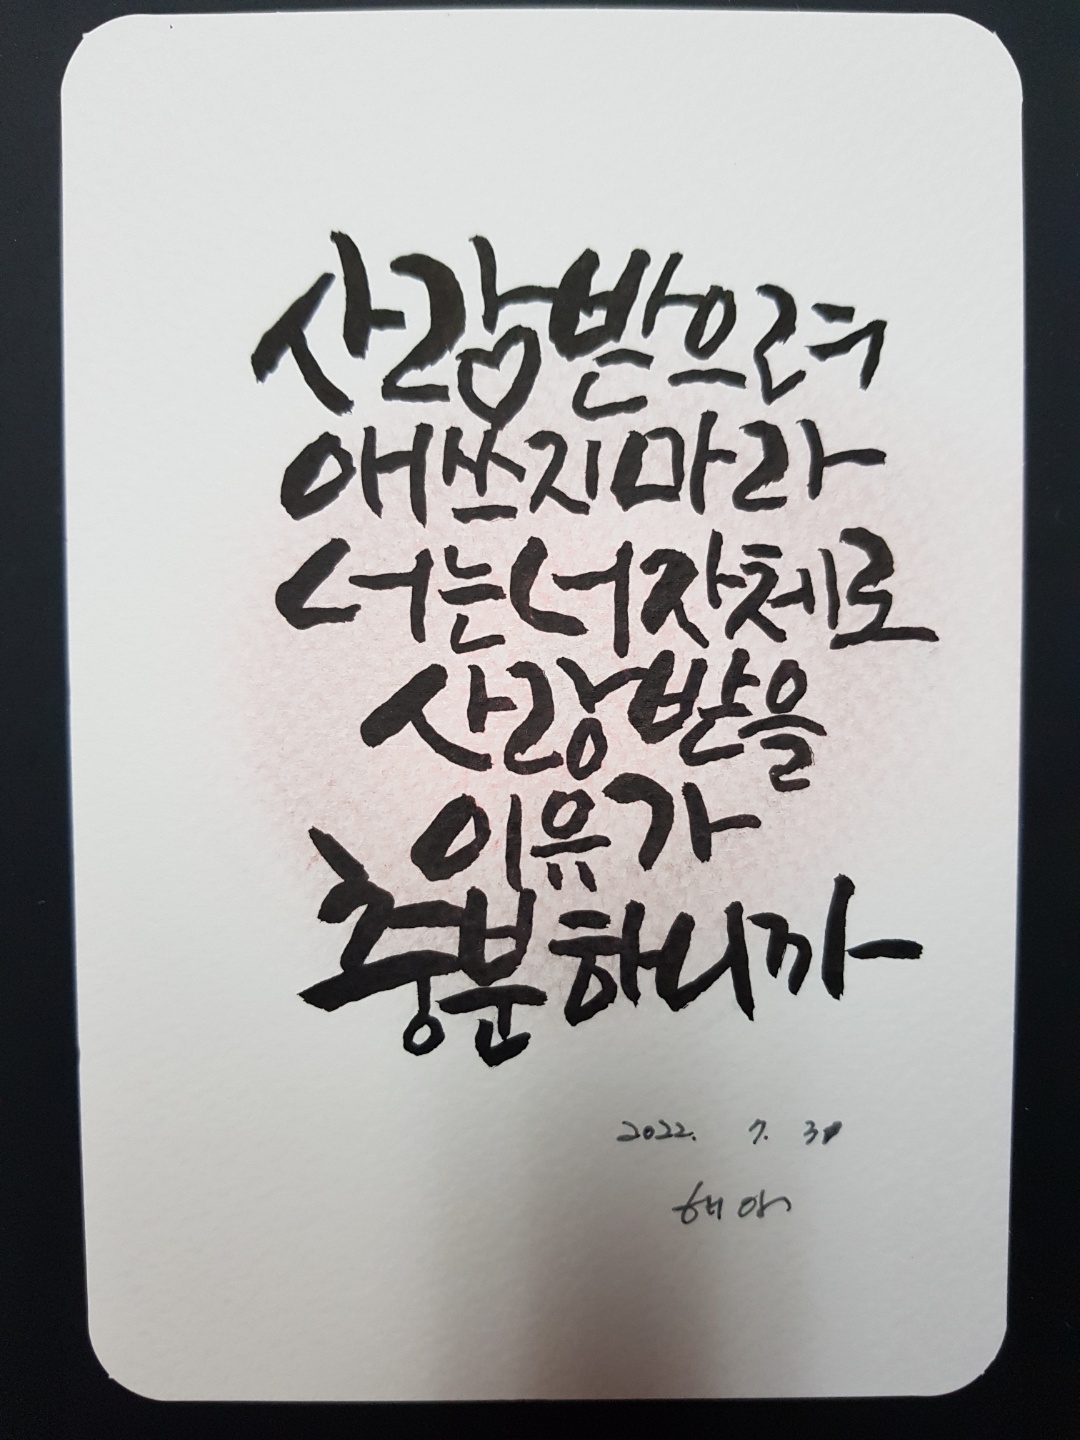 사랑받으려
애쓰지마라
너는너자체로
사랑받을
이유가
충분하니까
2022. 7. 31
해아